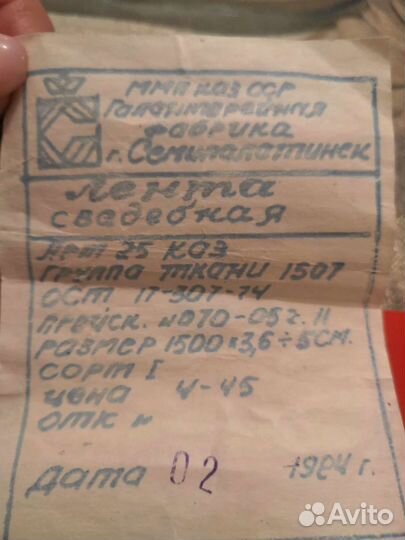 ММП КАЗ ССР
Галантерейная
фабрика
г. Семипалатинск
Лента
свадебная
Арт 25 КАЗ
Группа ткани 1507
ОСТ 17-307-74
Прейск. №070-05 г. 11
Размер 1500×3,6÷5см.
Сорт I
Цена 4-45
ОТК №
Дата 02 1984 г.
Avito